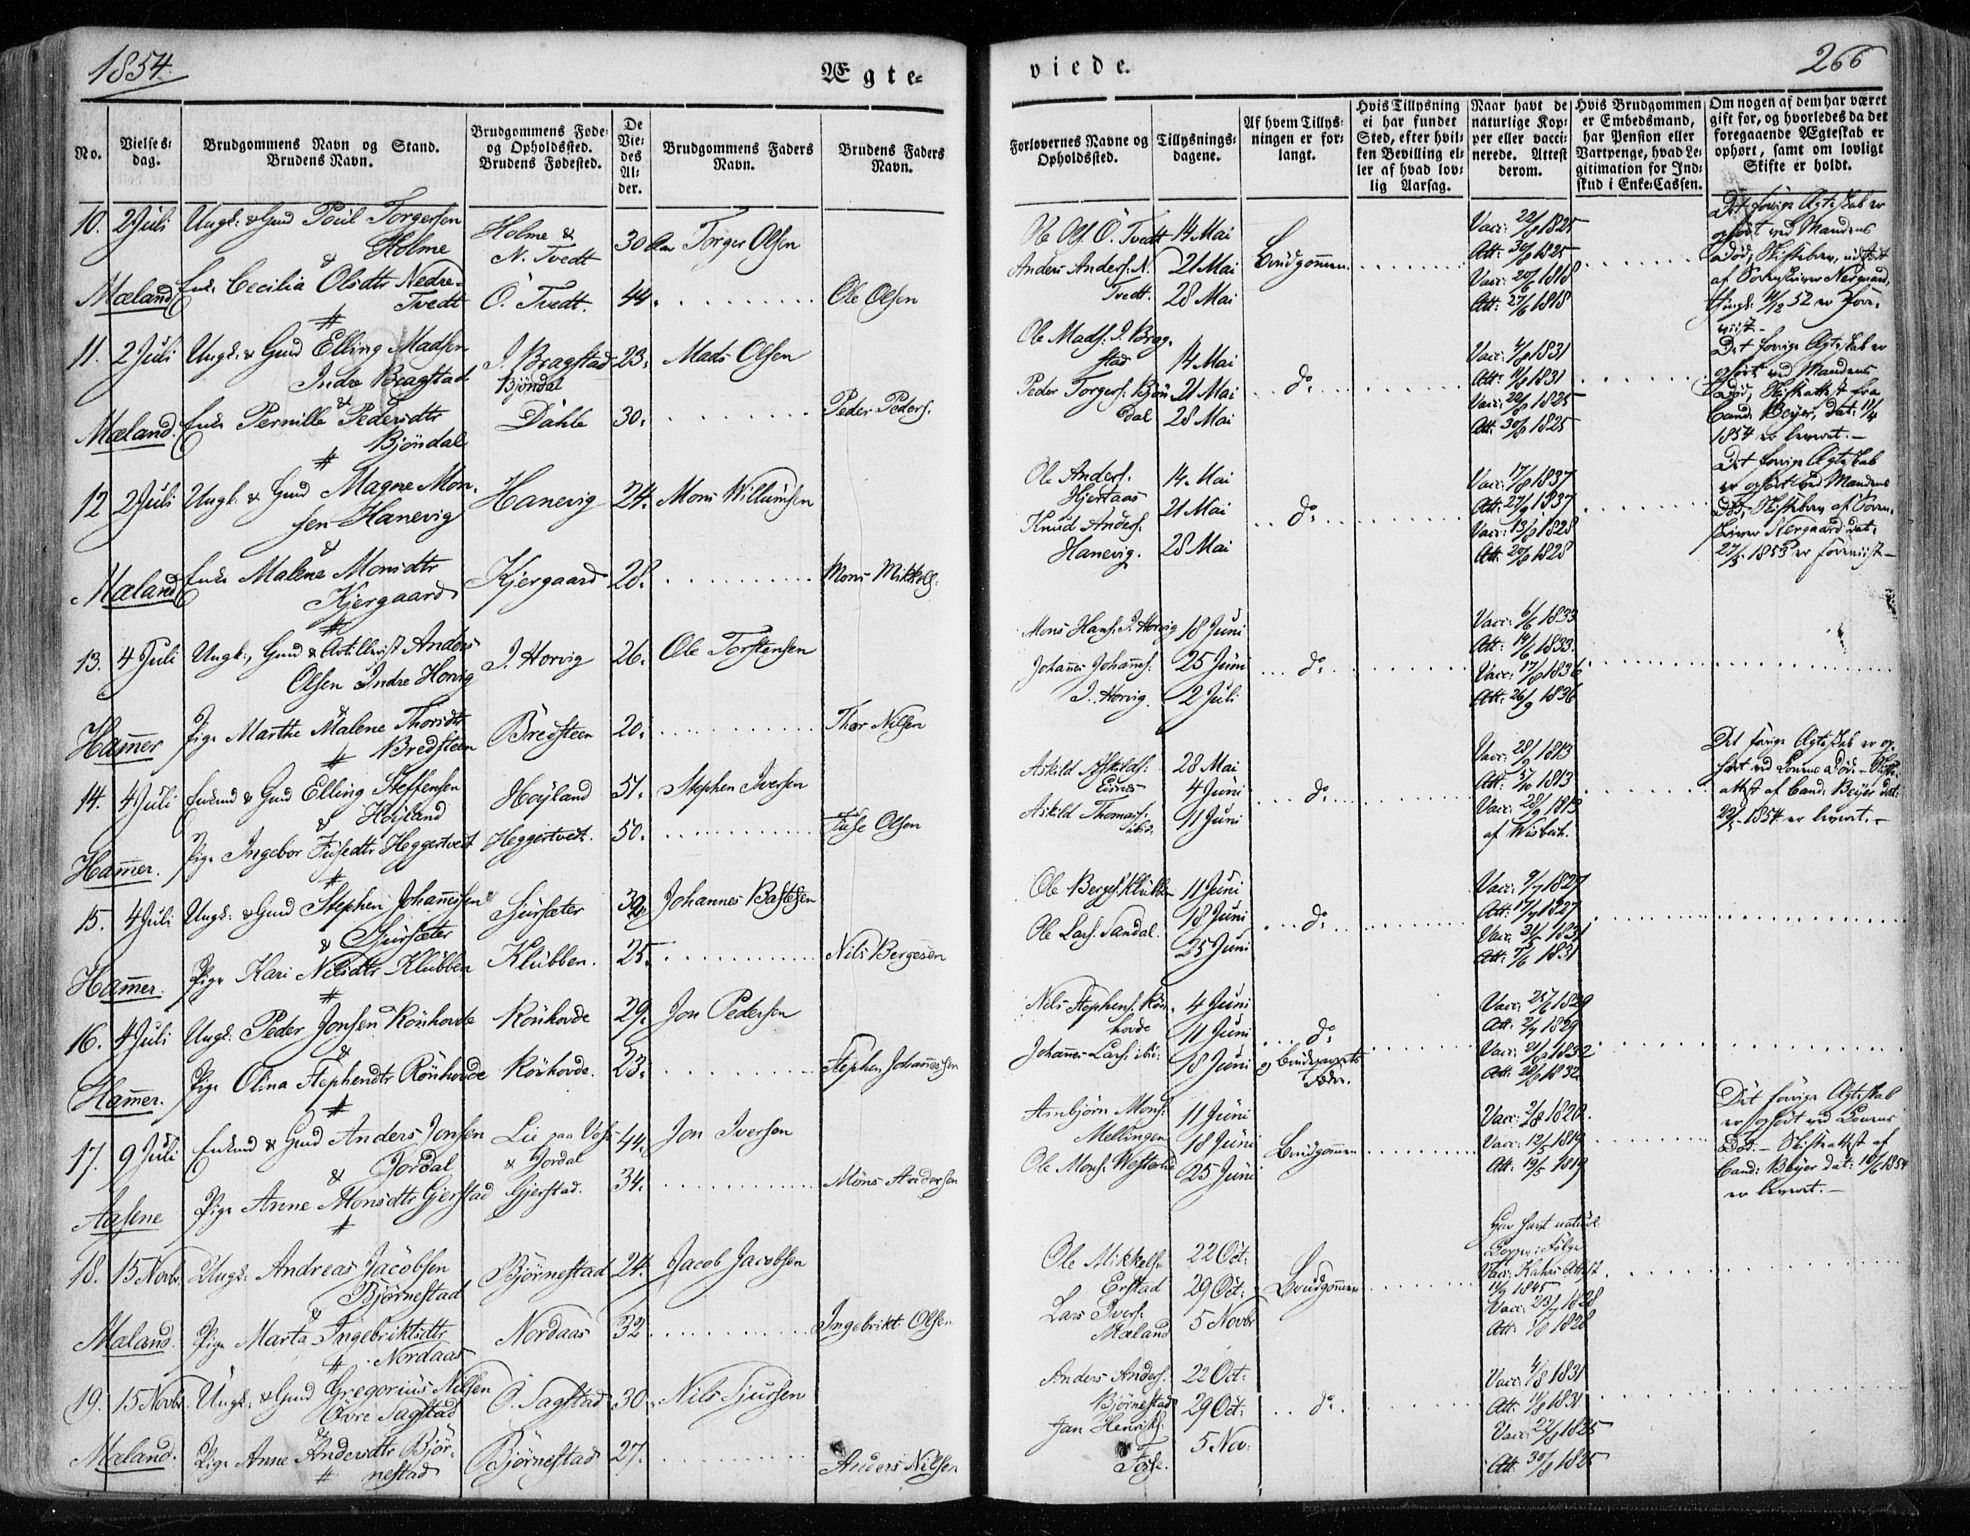 1854.
Ægte=
viede.
266
No.
Vielses=
dag.
Brudgommens Navn og Stand.
Brudens Navn.
Brudgommens Føde=
og Opholdssted.
Brudens Fødested.
De
Vie=
des
Al=
der.
Brudgommens Faders
Navn.
Brudens Faders
Navn.
Forlovernes Navne og
Opholdssted.
Tillysnings=
dagene.
Af hvem Tillys=
ningen er for=
langt.
Hvis Tillysning
ei har fundet
Sted, efter hvil=
ken Bevilling el=
ler af hvad lov=
lig Aarsag.
Naar havt de
naturlige Kop=
per eller vacci=
nerede. Attest
derom.
Hvis Brudgommen
er Embedsmand,
har Pension eller
Vartpenge, hvad Le=
gitimation for Ind=
skud i Enke=Cassen.
Om nogen af dem har været
gift før, og hvorledes da det
foregaaende Ægteskab er
ophørt, samt om lovligt
Skifte er holdt.
10. 2 Juli Ungk. & Gmd Poul Torgersen
Holme
&
Mæland Enke Cecilia Olsdtr Nedre=
Tvedt
Holme &
N. Tvedt
Ö. Tvedt.
30 Aar
44.
Torger Olsen
Ole Olsen
Ole Ols. Ö. Tvedt
Anders Anders. N.
Tvedt.
14 Mai
21 Mai
28 Mai
Brudgommen
Vacc: 22/8 1825
Att: 30/8 1825
Vacc: 20/6 1818
Att: 27/6 1818
Det forrige Ægteskab er
ophört ved Mandens
Död, Skiftebrev, udstedt
af Sorenskriver Nergaard,
er fore=
viist.
11. 2 Juli Ungk. & Gmd Elling Madsen
Indre Bragstad
&
Mæland. Enke Pernille Pedersdtr
Bjöndal
I. Bragstad
Bjöndal
Dahle
23.
30.
Mads Olsen
Peder Peders.
Ole Mads. I. Brag=
stad
Peder Torgers. Bjön
dal
14 Mai
21 Mai
28 Mai
do
Vacc: 4/8 1831
Att: 11/8 1831
Vacc: 22/8 1825
Att: 30/8 1825
Det forrige Ægteskab er
ophört ved Mandens
Död, Skifteattest fra
Cand: Beyer, dat: 11/4
1854 er leveret.
12 2 Juli Ungk. & Gmd Magne Mon=
sen Hanevig
&
Mæland Enke Malene Monsdtr
Kjergaard
Hanevig
Kjergaard
24.
28.
Mons Willumsen
Mons Mikkels.
Ole Anders.
Hjertaas
Knud Anders.
Hanevig.
14. Mai
21 Mai
28 Mai
do
Vacc: 17/8 1837
Att: 27/9 1837
Vacc: 13/8 1828
Att: 20/8 1828
Det forrige Ægteskab
er ophört ved Mandens
Död, Skiftebrev af Soren=
skriver Nergaard dat:
27/5 1853 er foreviist
13. 4 Juli Ungk., Gmd & Artillerist Anders
Olsen Indre Horvig
&
Hamer Pige Marthe Malene Thorsdtr
Bredsteen
I. Horvig
Bredsteen
26.
20.
Ole Torstensen
Thor Nilsen
Mons Hans. I. Horvig
Johannes Johanns.
I. Horvig.
18 Juni
25 Juni
2 Juli
do
Vacc: 6/6 1833
Att: 14/6 1833.
Vacc: 17/8 1836
Att: 26/9 1836
14. 4 Juli Enkmd & Gmd Elling Steffensen
Höyland
&
Hamer. Pige Ingebor Fusedtr Heggertvedt
Höyland
Heggertvedt.
51.
50.
Stephen Iversen
Fuse Olsen
Askild Askilds.
Eknes
Askild Thomas.
ibid.
28 Mai
4 Juni
11 Juni
do
Vacc: 28/9 1813
Att: 5/10 1813
Vacc: 28/9 1813
Det forrige Ægteskab er op=
hört ved Konens Död. Skifte=
attest af Cand: Beyer dat:
22/5 1854 er leveret.
15. 4 Juli Ungk. & Gmd Stephen Johannessen
Sjursæter
&
Hamer. Pige Kari Nilsdtr Klübben
Sjursæter
Klübben.
25.
Johannes Bastesen
Nils Bergesen
Ole Berges. Klübben
Ole Lars. Sandal.
11 Juni
18 Juni
25 Juni
do
Vacc: 9/7 1827
Att: 17/7 1827
Vacc: 31/5 1831
Att: 7/6 1831
16. 4 Juli Ungk. Peder Jonsen Rönhovde
&
Hamer. Pige Olina Stephendtr Rönhovde
Rönhovde
Rönhovde.
29.
23.
Jon Pedersen
Stephen Johannessen
Nils Stephens. Rön=
hovde
Johannes Lars. ibid.
4 Juni
11 Juni
18 Juni
do
& Brudgommens
Fader.
Vacc: 25/6 1829
Att: 2/7 1829
Vacc: 21/8 1832
Att: 28/8 1832
17. 9 Juli Enkmd & Gmd Anders Jonsen
Jordal
&
Aasene Pige Anne Monsdtr Gjerstad
Lie paa Voss
& Jordal
Gjerstad.
44.
34.
Jon Iversen
Mons Andersen
Arnbjörn Mons.
Mellingen
Ole Mons. Westerlie
11 Juni
18 Juni
25 Juni
Brudgommen
Vacc: 2/8 1820.
Vacc: 12/5 1819
Att: 19/5 1819
Det forrige Ægteskab
er ophört ved Konens
Död. Skifteattest af
Cand: Beyer dat: 10/6 1854
er leveret.
18. 15 Novbr. Ungk. Andreas Jacobsen
Björnestad
&
Mæland. Pige Marta Ingebriktsdtr
Nordaas
Björnestad
Nordaas
24.
32
Jacob Jacobsen
Ingebrikt Olsen
Ole Mikkels.
Erstad
Lars Ivers.
Mæland
22 Oct:
29 Oct:
5 Novbr
Brudgommen
Har havt naturl.
Kopper ifölge
Vacc: Attest
1845
Vacc: 23/7 1828
Att: 1/8 1828
19. 15 Novbr. Ungk. & Gmd Gregorius Nilsen
Övre Sagstad
&
Mæland. Pige Anne Andersdtr Björ=
nestad
Ö. Sagstad
Björnestad
30
27.
Nils Sjursen
Anders Nilsen
Anders Anders.
Björnestad
Jan Henriks.
Fosse.
22 Oct:
29 Oct:
5 Nov:
do
Vacc: 4/8 1831
Att: 11/8 1831
Vacc: 22/8 1825
Att: 30/8 1825